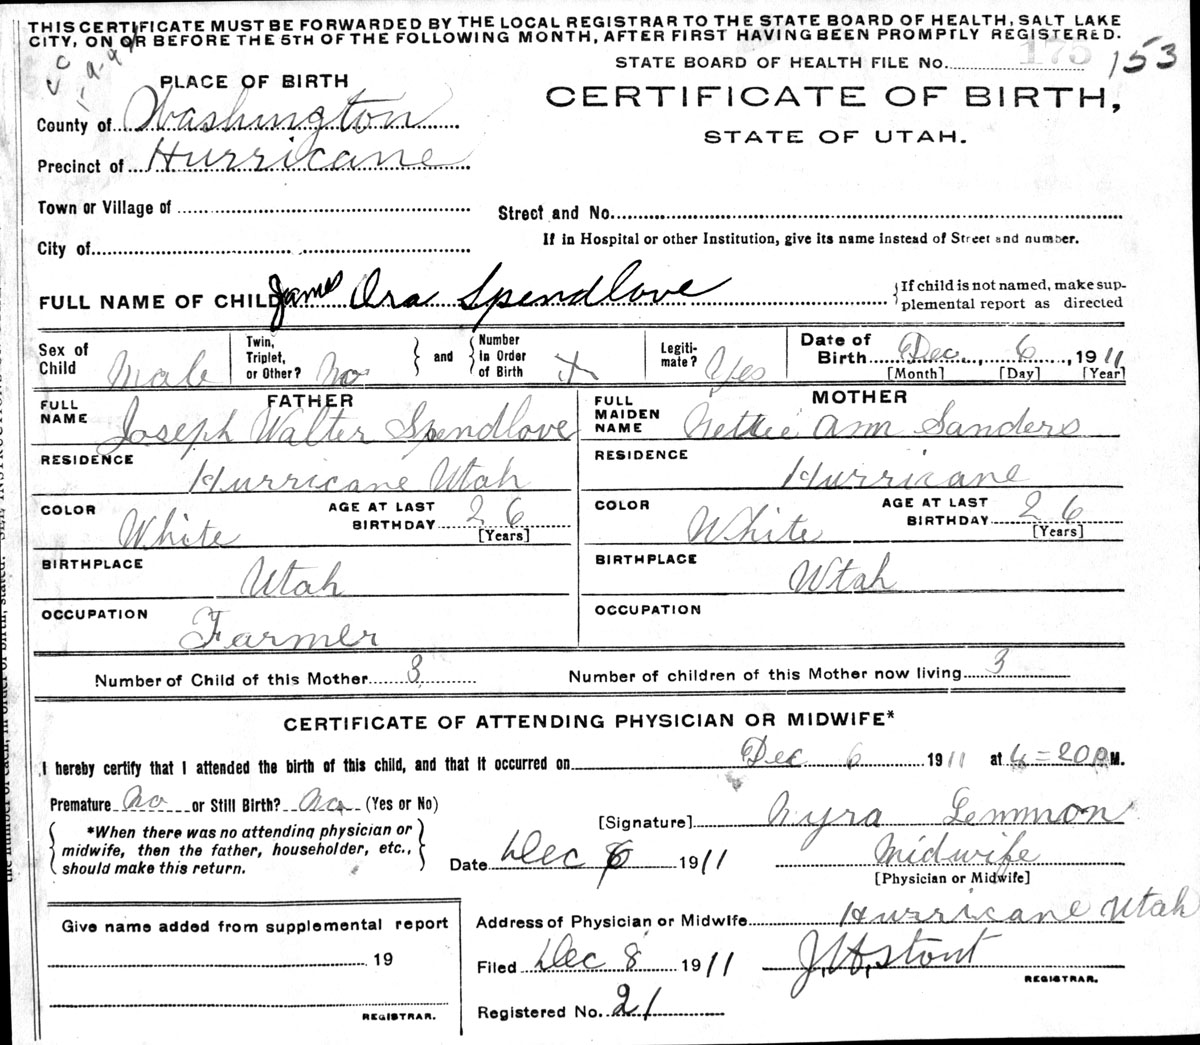 THIS CERTIFICATE MUST BE FORWARDED BY THE LOCAL REGISTRAR TO THE STATE BOARD OF HEALTH, SALT LAKE
CITY, ON OR BEFORE THE 5TH OF THE FOLLOWING MONTH, AFTER FIRST HAVING BEEN PROMPTLY REGISTERED.
STATE BOARD OF HEALTH FILE No. 175 153
PLACE OF BIRTH
CERTIFICATE OF BIRTH,
County of Washington
STATE OF UTAH.
Precinct of Hurricane
Town or Village of
Street and No.
City of
If in Hospital or other Institution, give its name instead of Street and number.
FULL NAME OF CHILD James Ora Spendlove
If child is not named, make sup-
plemental report as directed
Sex of Child Male
Twin, Triplet, or Other? No
and
Number in Order of Birth
Legiti-mate? Yes
Date of Birth Dec. 6, 1911
[Month] [Day] [Year]
FATHER
FULL NAME Joseph Walter Spendlove
MOTHER
FULL MAIDEN NAME Nettie Ann Sanders
RESIDENCE Hurricane Utah
RESIDENCE Hurricane
COLOR White AGE AT LAST BIRTHDAY 26 [Years]
COLOR White AGE AT LAST BIRTHDAY 26 [Years]
BIRTHPLACE Utah
BIRTHPLACE Utah
OCCUPATION Farmer
OCCUPATION
Number of Child of this Mother 3 Number of children of this Mother now living 3
CERTIFICATE OF ATTENDING PHYSICIAN OR MIDWIFE*
I hereby certify that I attended the birth of this child, and that it occurred on Dec 6 1911 at 4=20 P M.
Premature No or Still Birth? No (Yes or No)
*When there was no attending physician or
midwife, then the father, householder, etc.,
should make this return.
[Signature] Nyra Lemmon
Date Dec 6 1911 Midwife
[Physician or Midwife]
Give name added from supplemental report
19
REGISTRAR.
Address of Physician or Midwife Hurricane Utah
Filed Dec 8 1911 J. H. Stout
REGISTRAR.
Registered No. 21